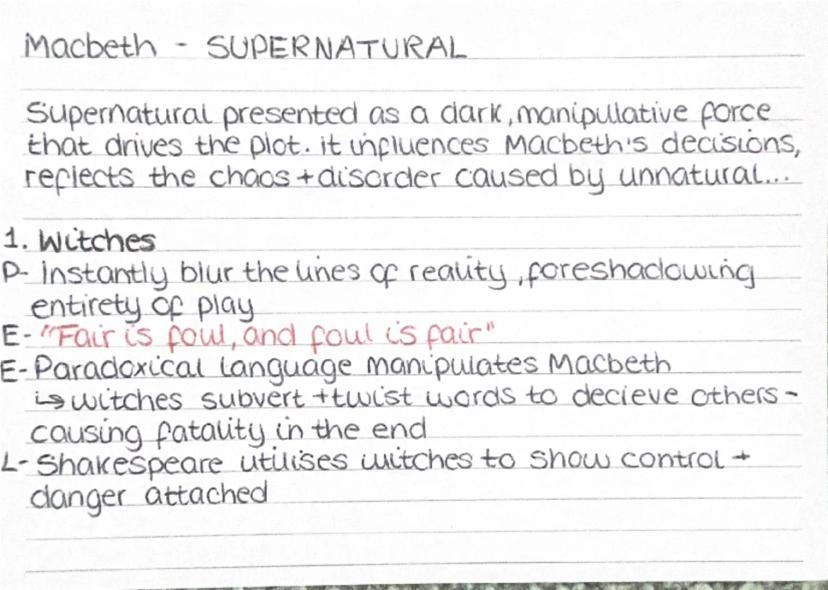 Macbeth - SUPERNATURAL
Supernatural presented as a dark, manipulative force
that drives the plot. it influences Macbeth's decisions,
reflects the chaos + disorder caused by unnatural...
1. Witches
P- Instantly blur the lines of reality, foreshadowing
entirety of play
E- "Fair is foul, and foul is fair"
E- Paradoxical language manipulates Macbeth
↳ witches subvert + twist words to decieve others -
causing fatality in the end
L- Shakespeare utilises witches to show control +
danger attached